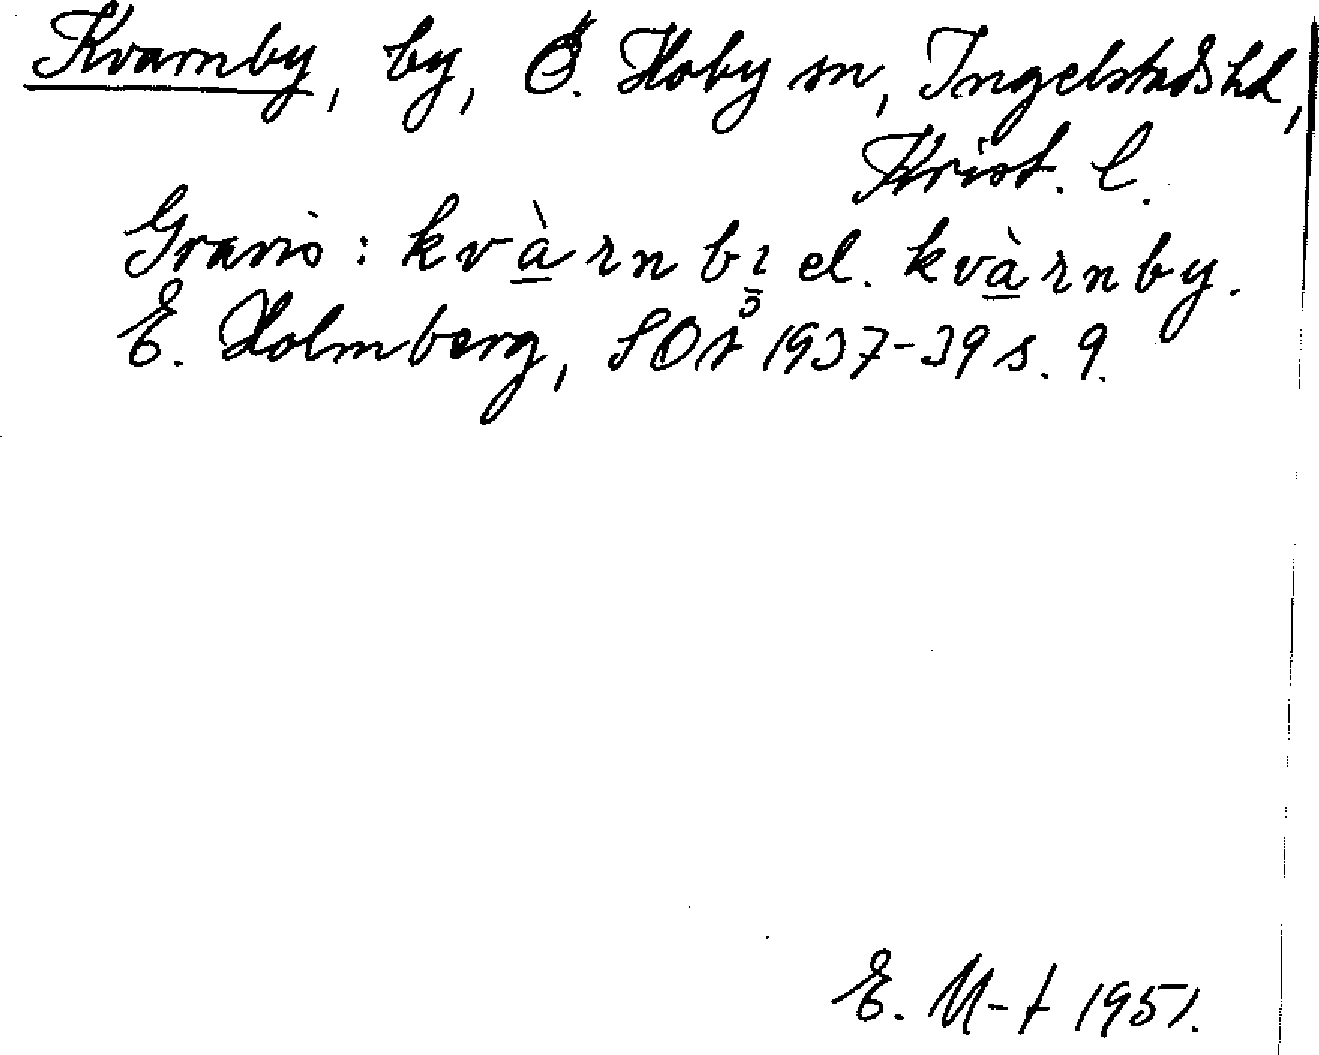 Kvarnby, by, Ö. Hoby sn, Ingelstads hd,
Krist. l.
Gravis: kvàrnbı el. kvàrnby.
3
E. Holmberg, SOÅ 1937-39 s. 9.
E. M-t 1951.